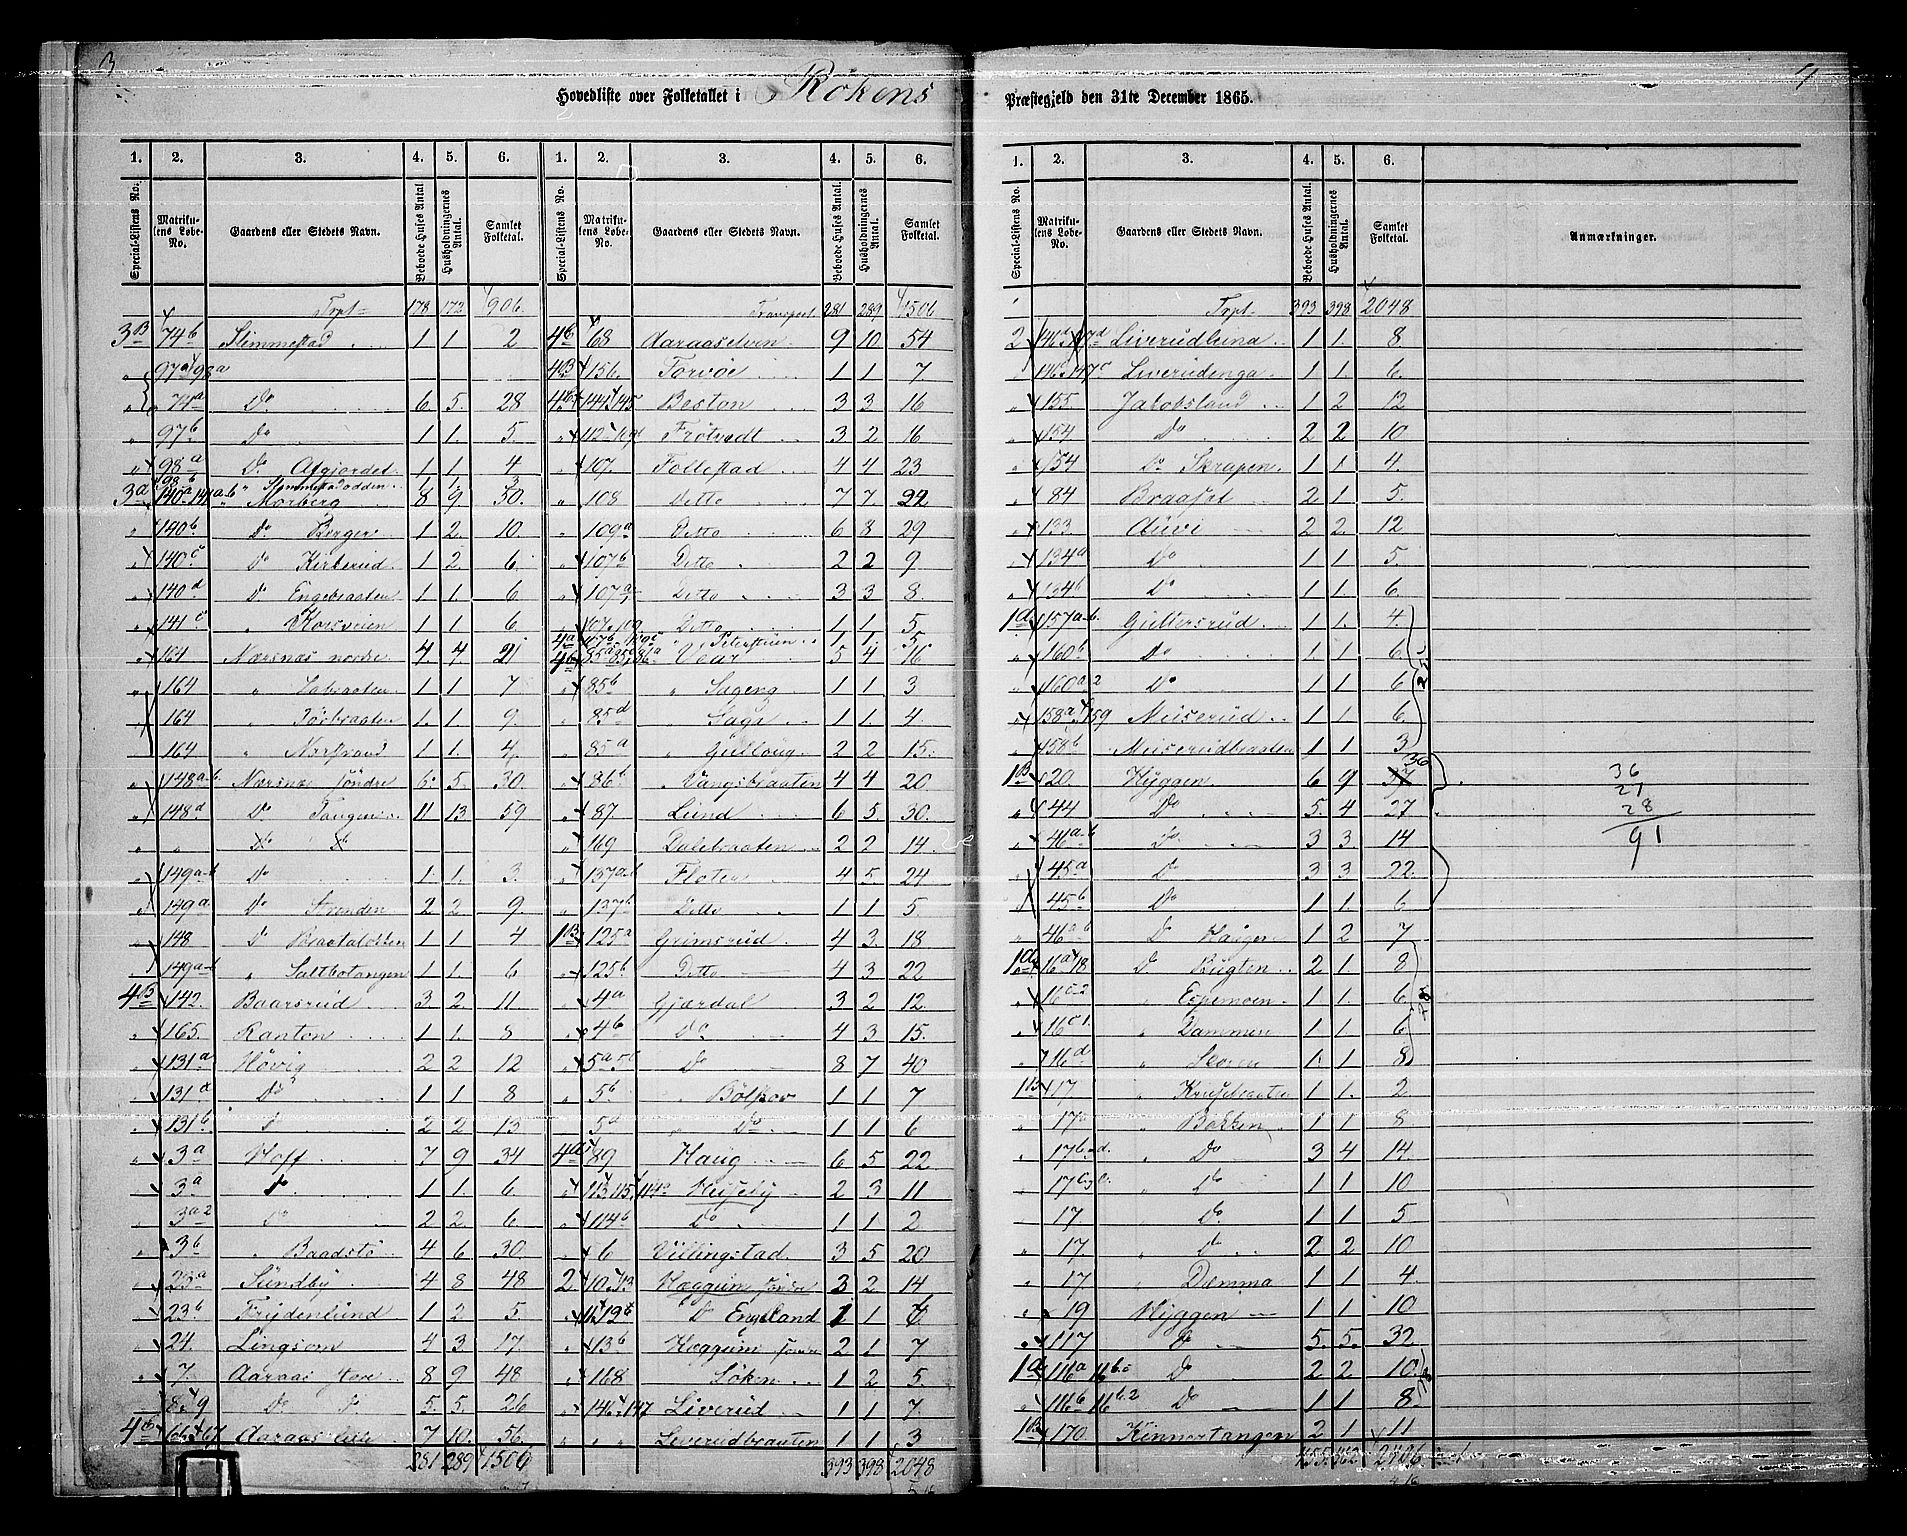 3
4
Hovedliste over Folketallet i Rökens Præstegjeld den 31te December 1865.
1. 2. 3. 4. 5. 6. 1. 2. 3. 4. 5. 6.
Special-Listens No. Matrikulens Løbe-No. Gaardens eller Stedets Navn. Beboede Huses Antal. Husholdningernes Antal. Samlet Folketal. Special-Listens No. Matrikulens Løbe-No. Gaardens eller Stedets Navn. Beboede Huses Antal. Husholdningernes Antal. Samlet Folketal.
Trpt 178 172 906
3B 74b Slimmestad 1 1 2
97a 98a
" 74a Do 6. 5. 28
" 97b Do 1 1. 5.
" 98a Do Afgjordet 1 1. 4
98b " Slemmestadodden 1 1. 3
3a 140a-141a-b " Morberg 8 9 50.
" 140b Do Berger 1 2. 10.
" 140c Do Kirkerud 1 2. 6
" 140d Do Engebraaten 1 1. 6
" 141c " Korsveien 1 1 6
" 164 Nærsnæs nordre 4. 4 21
" 164 " Labraaten 1 1 7
" 164 " Törbraaten 1. 1. 9.
164 " Nærstrand 1 1. 4
" 148a-b Nærsnæs söndre 6. 5. 30.
" 148d Do Tangen 11 13 59
" " Do Do
" 149a-b Do 1. 1. 3.
" 149a Do Stranden 2 2 9.
" 148 Do Braataløkken 1 1 4
" 149a-b " Saltbotangen 1 1. 6
4B 142. Baarsrud 3 2. 11
" 165. Ranton 1 1. 8
" 131a Hövig 2 2 12
" 131d Do 1 1 8
" 131b Do 2 2 13
" 3a Hoff 7 9 34
" 3a Do 1 1. 6
" 3a2 Do 2 2. 6
" 3b " Baadstö 4 6 30.
" 23a Sundby 4 8 48
" 23b Frydenlund 1 2 5.
" 24. Lingsom 4 3 17.
" 7. Aaraas store 8 9 48
" 8 9 Do Do 5. 5. 26
4b 66 67 Aaraas lille 7 10. 56
281 289 1506
Transport 281 289 1506
4b 68 Aaraaselven 9 10. 54
4B 156. Torvöe 1 1 7
4b 144 145 Beston 3 3 16
" 112 Frötvedt 3 2 16
" 107. Follestad 4 4 23
" 108 Ditto 7 7. 22
" 109a Ditto 6 8 29
" 107b Ditto 2 2 9.
" 107a Ditto 3 3 8.
107 109 Ditto 1 1 5
4a " Petersteen 1 1. 5
4b Vear 5 4 16
" 85b " Sageng 1 1 3
" 85d " Saga 1 1. 4
" 85a " Gulloug 2 2 15.
" 86b " Vangsbraaten 4 4 20
" 87 Lund 6 5 30.
" 169 Dalebraaten 2 2 14.
" 137a-b Floten 4 5. 24
" 137b Ditto 1 1 5
1B 125a Grimsrud 4 3. 18
" 125b Ditto 4 3. 22
" 4a Gjærdal 3 2 12.
" 4b Do 4 3 15.
" 5a 5b Do 8 7 40
" 5b " Bölstov 1 1 7
" 5a " Do 1 1 6
4a 89 Haug 6 5 22
" 113 115 114a Huseby 2 3 11
" 114b Do 1 1 2
" 6 Villingstad 3 5 20
2 10 13 Hæggum söndre 3 2 14
" Do Engeland 1 1 6
" 13b Hæggum 2 1 7
" 168 Söken 1 2 5.
" 146 147 Liverud 1 1 7.
" " Liverudbraaten 1 1 3
393 398 2048
1. 2. 3. 4. 5. 6.
Special-Listens No. Matrikulens Løbe-No. Gaardens eller Stedets Navn. Beboede Huses Antal. Husholdningernes Antal. Samlet Folketal. Anmærkninger.
Trpt 393 398 2048
2 146d 147d Liverudhina 1 1. 8
146c 147c Liverudenga 1 1 6.
" 155. Jakobsland 1 2 12
" 154 Do 2 2 10
" 154 Do Skrapen 1 1 4.
" 84 Braasjöt 2 1 5.
" 133 Auvi 2 2. 12
" 134a Do 1 1 5.
" 134b Do 1 1 6.
1a 157a-b. Guttersrud 1. 1. 4.
" 160b Do 1. 1 6
" 160a2 Do 1 1 6
25
" 158a 159 Muserud 1 1 6
" 158b Muserudbraaten 1 1 3
1B 20. Hyggen 6 9 37 36
" 44 Do 5. 4 27
" 46a-b Do 3 3 14
" 45a Do 3 3 22.
" 45b Do 1 1. 6
36
27
28
91
" 46a-b Do Haugen 1 2 7
1a 16a 18 Do Bugten 2 1 8
" 16c2 " Espemoen 1 1. 6
28
" 16c1. " Dammen 1 1 6
" 16d " Skoren 1 1 8
1B 17 " Krusebraaten 1 1. 2
" 17a " Bakken 1 1 8
" 17b-d. " Do 3 4 14
" 17 " Do 1 1 10
17. " Do 1 1 5
" 17. " Do 2 2 10
" 17 " Damma 1 1 4.
" 19 Hyggen 1 1 10
" 117 Do 5. 5. 32
1a 116a 116b Do 2 2 10.
18
" 116b 116b.2 Do 1 1 8
1B 170. Kinnartangen 2 1 11
455. 462 2406